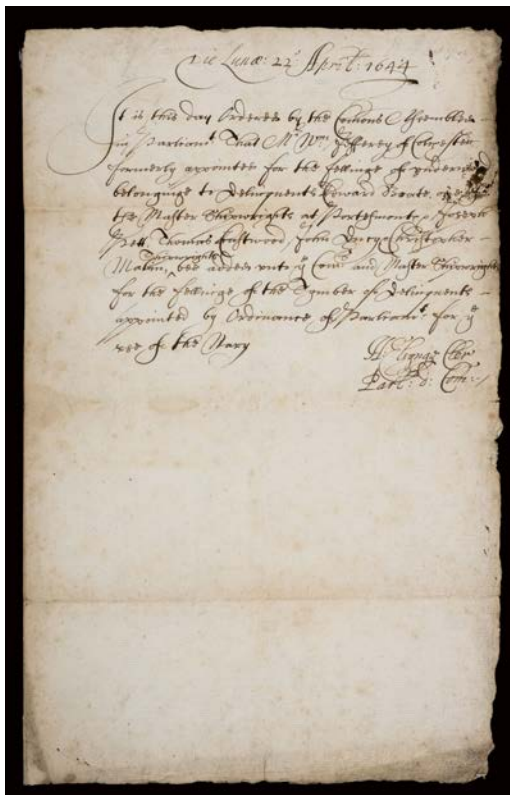 Die Lunæ: 22º Aprill: 1644
It is this day Ordered by the Comons Assembled
in Parliamt That Mr Wm Jefferey of
formerly appointed for the fellinge of
belonginge to Delinquents Edward Boate, one of
the Master Shipwrights at Portesmouth, Joseph
Pett, Thomas Eastwood, John Christopher
Malim, Shipwrights bee added unto ye Comrs and Master Shipwrights
for the fellinge of the Tymber of Delinquents
appointed by Ordinance of Parliamt. for ye
use of the Navy
H: Elsynge Cler
Parl: D: Com: